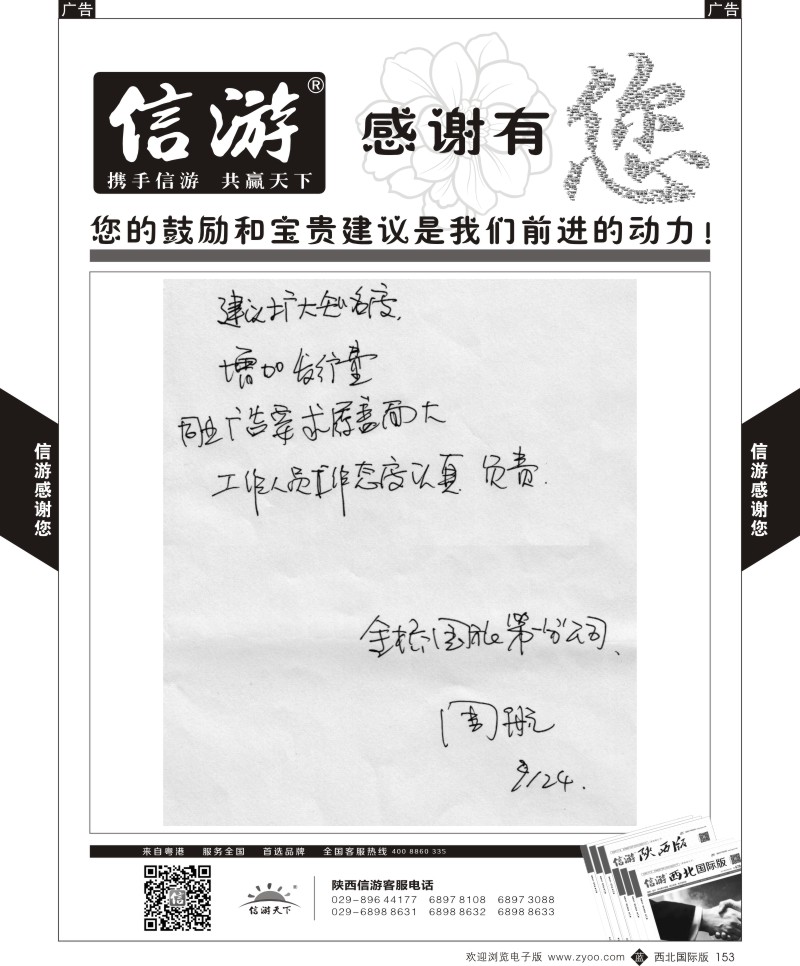 广告
广告
信游®
携手信游 共赢天下
感谢有
您
您的鼓励和宝贵建议是我们前进的动力!
建议扩大知名度,
增加发行量
同业广告要求覆盖面大
工作人员工作态度认真 负责.
金桥国旅第一分公司、
周航
9/24.
信游感谢您
信游感谢您
来自粤港 服务全国 首选品牌 全国客服热线 400 8860 335
信游
信游天下
陕西信游客服电话
029-896 44177 6897 8108 6897 3088
029-6898 8631 6898 8632 6898 8633
信游 陕西版
信游 西北国际版
欢迎浏览电子版 www.zyoo.com 蓝 西北国际版 153